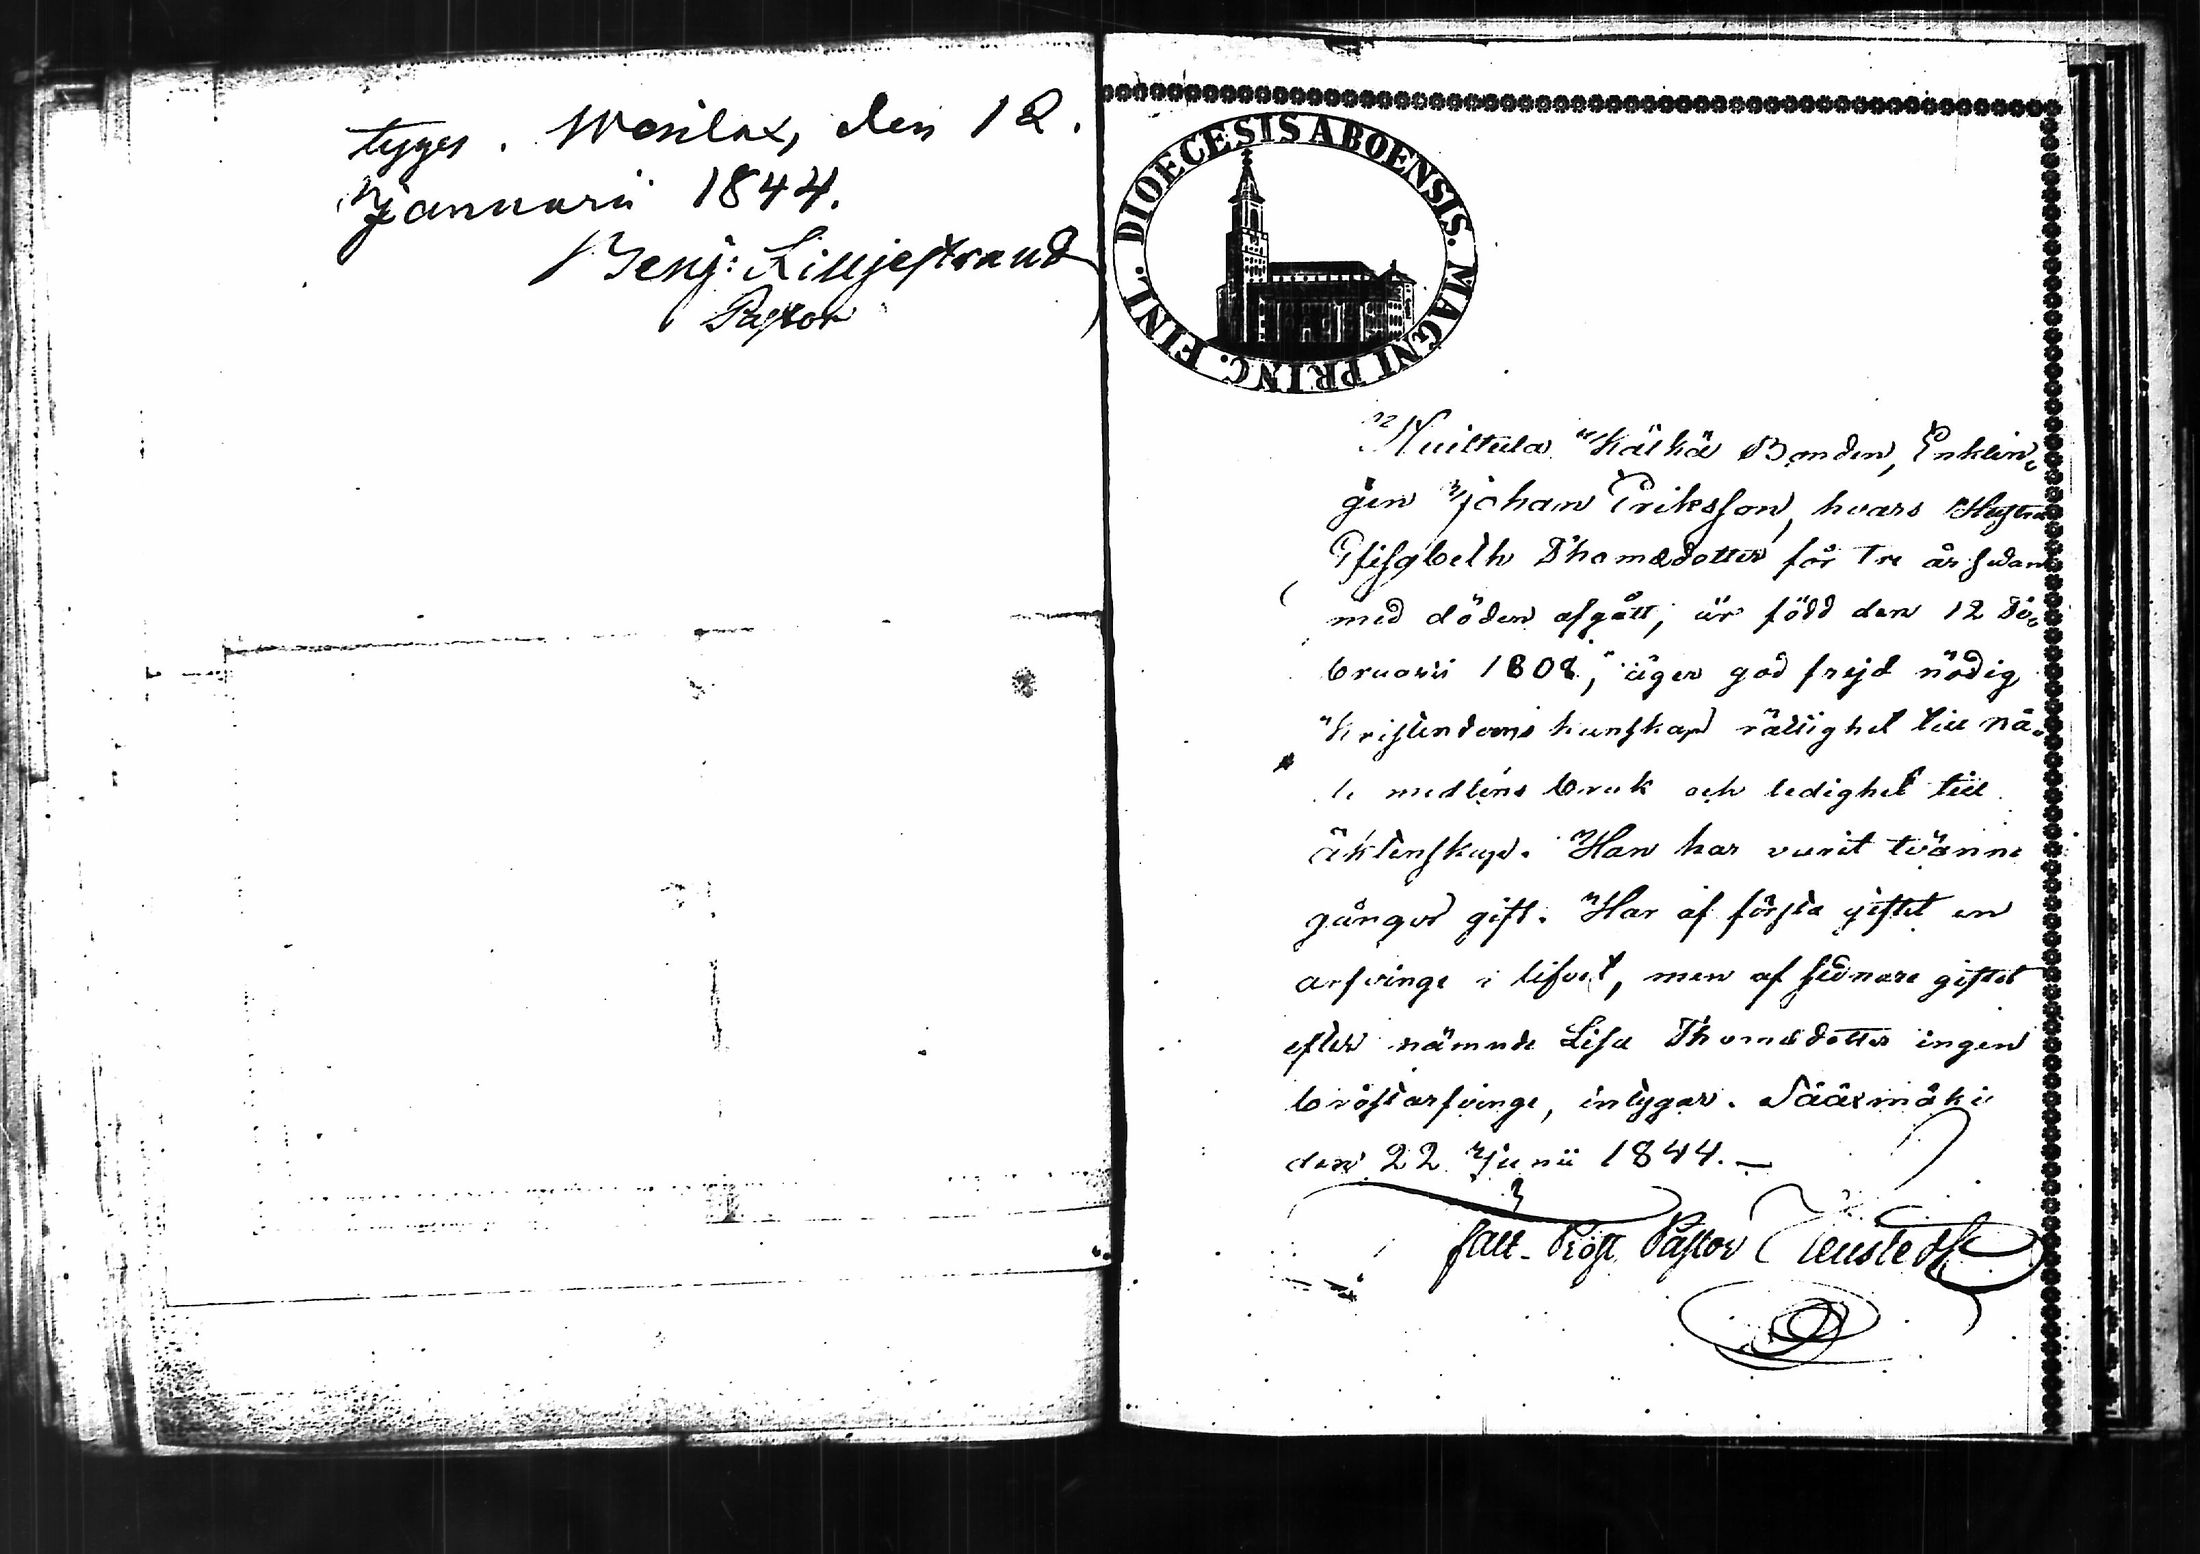 tyges. Wesilax, den 12.
Januarii 1844.
Benj: Liljestrand
Pastor
DIOECESIS ABOENSIS. MAGNI PRINC. FINL.
Huittula Kälhä Bonden, Enklin„
gen Johan Eriksson, hvars Hustru
Elisabeth Thomædotter för tre år sedan
med döden afgått, är född den 12 Fe„
bruarii 1808, äger god frejd nödig
Kristendoms kunskap rättighet till nå„
de medlens bruk och ledighet till
äktenskap. Han har varit tvänne
gånger gift. Har af första giftet en
arfvinge i lifvet, men af sednare giftet
efter nämnde Lisa Thomædotter ingen
bröstarfvinge, intygar. Sääxmäki
den 22 Junii 1844.—
Prost Pastor